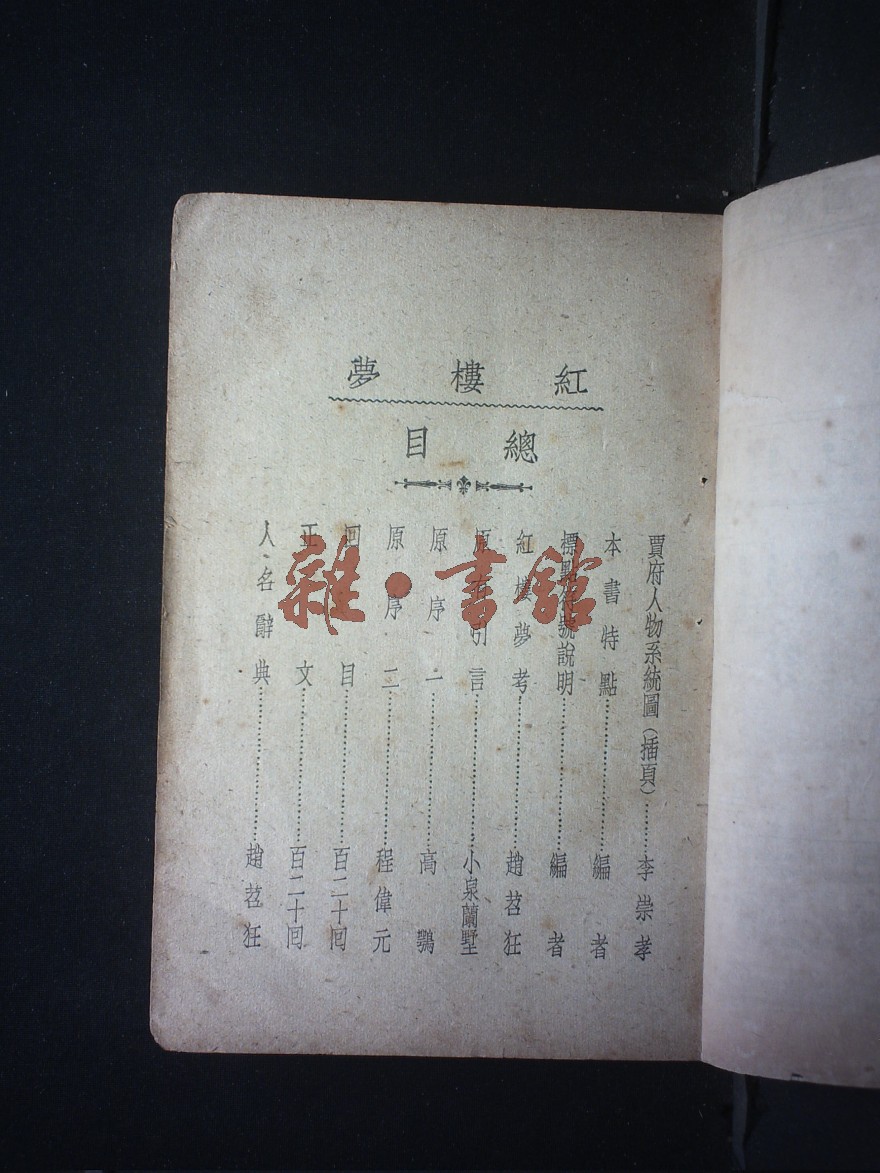 紅樓夢
總目
賈府人物系統圖（插頁）………李崇孝
本書特點………編者
標點符號說明………編者
紅樓夢考………趙苕狂
原有引言………小泉蘭墅
原序一………高鶚
原序二………程偉元
回目………百二十囘
正文………百二十囘
人名辭典………趙苕狂
雜·書館